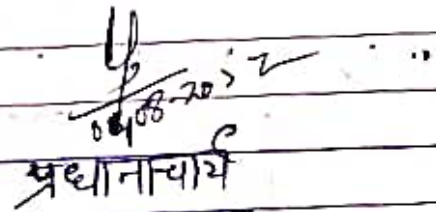 04-08-2022
प्रधानाचार्य